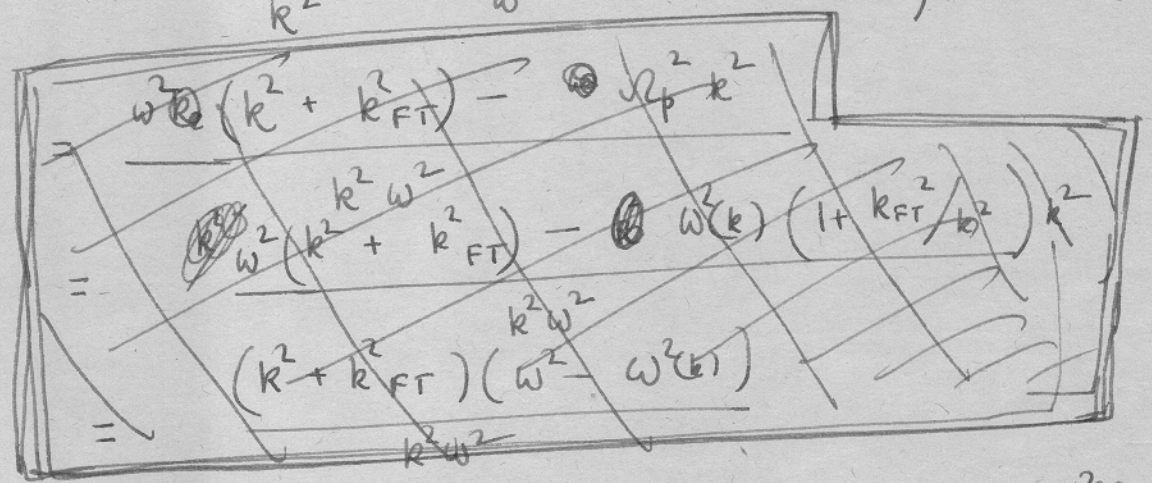 k² ω
= ω²(k² + k²_FT) − Ω_p² k²
k² ω²
= ω²(k² + k²_FT) − ω²(k) (1 + k_FT²/k²) k²
k² ω²
= (k² + k²_FT)(ω² − ω²(k))
k² ω²